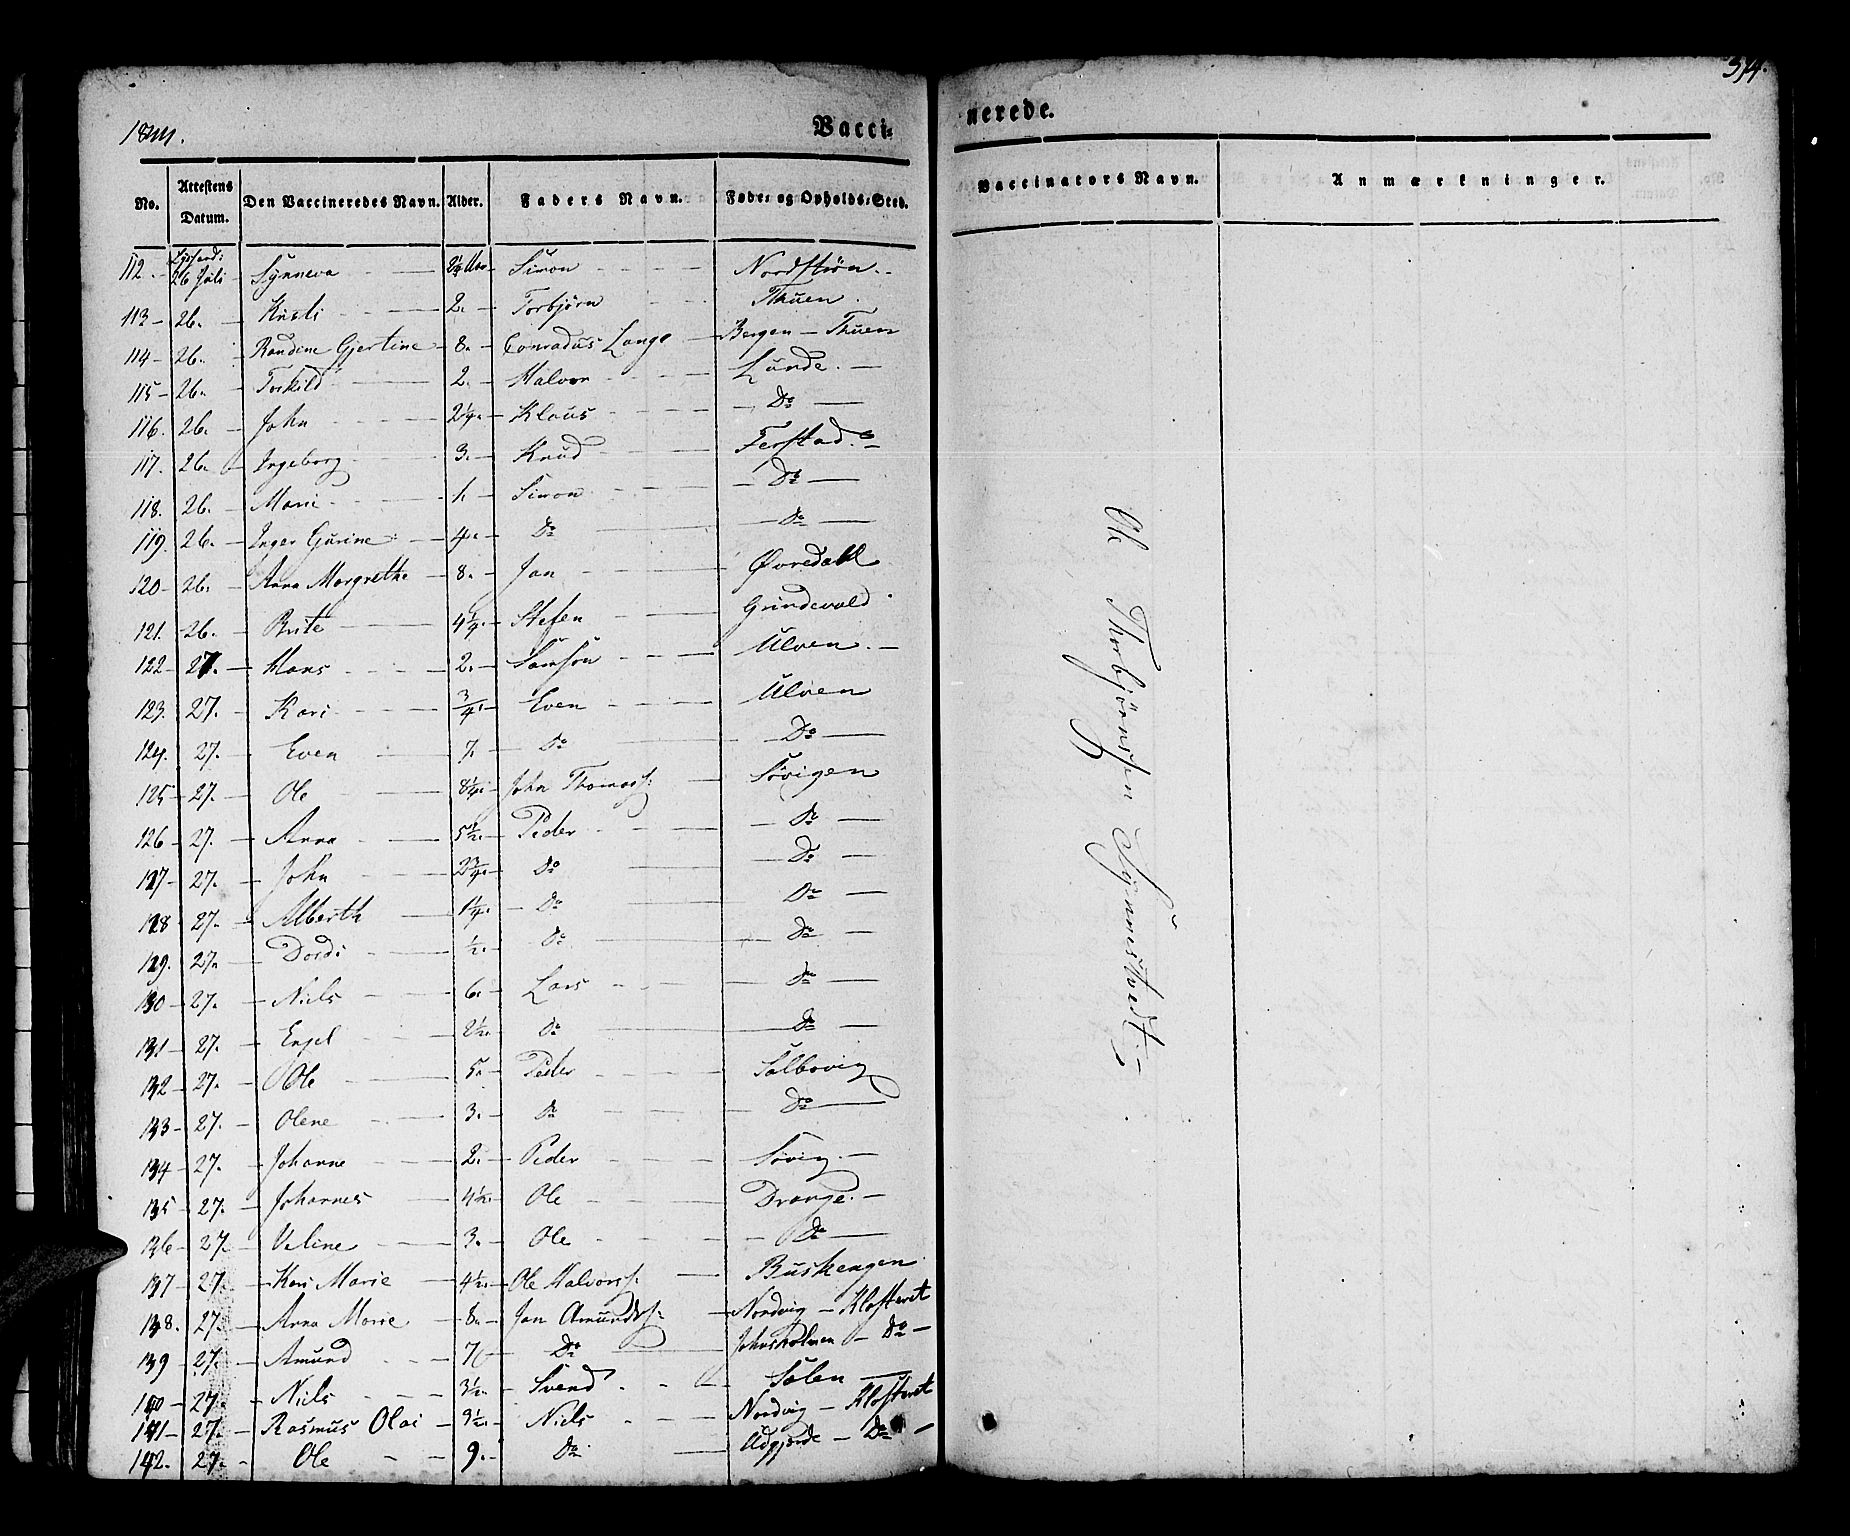 1844.
Vacci-
nerede.
No. Attestens Datum. Den Vaccineredes Navn. Alder. Faders Navn. Føde- og Opholds-Sted. Vaccinators Navn. Anmærkninger.
112. 26 Juli Synneva Simon Nordstrøn.
113 26. Kristi 2. Torbjørn Thuen.
114 26. Randine Gjertine 8. Conradus Lange Bergen - Thuen
115 26. Torkild 2. Halvor Lunde.
116. 26. John 2¼. Klaus Do
117. 26. Ingeborg 3. Knud Ferstad.
118. 26. Marie 1. Simon Do
119. 26. Inger Gurine 4. Do Do
120 26. Anna Margrethe 8. Jan Øvredahl
121. 26. Brite 4¼. Stefen Grindevald
122 27. Hans 2. Samson Ulven.
123. 27. Kari ¾. Even Ulven
124. 27. Even 7. Do Do
125 27. Ole 8¼. John Thomass: Søvigen
126 27. Anna 5½. Peder Do
127 27. John 2¾. Do Do
128 27. Alberth 1¼. Do Do
129. 27. Dordi ½. Do Do
130 27. Niels 6. Lars Do
131 27. Engel 2½. Do Do
132 27. Ole 5. Peder Salbovig
133 27. Olene 3. Do Do
134 27. Johanne 2. Peder Søvig.
135 27. Johannes 4½. Ole Drange.
136 27. Veline 3. Ole Do
137 27. Kari Marie 4½. Ole Halvors: Buskengen
138. 27. Anna Marie 8. Jan Amunds: Nordvig - Klosteret
139 27. Amund 7 Do Johnsholmen - Do
140 27. Niels 3½. Svend Salen
141 27. Rasmus Olai 9½. Niels Nordvig - Klosteret
142. 27. Ole 9. Do Adgjerde - Do
Ole Thorbjörnssen Synnestvedt.